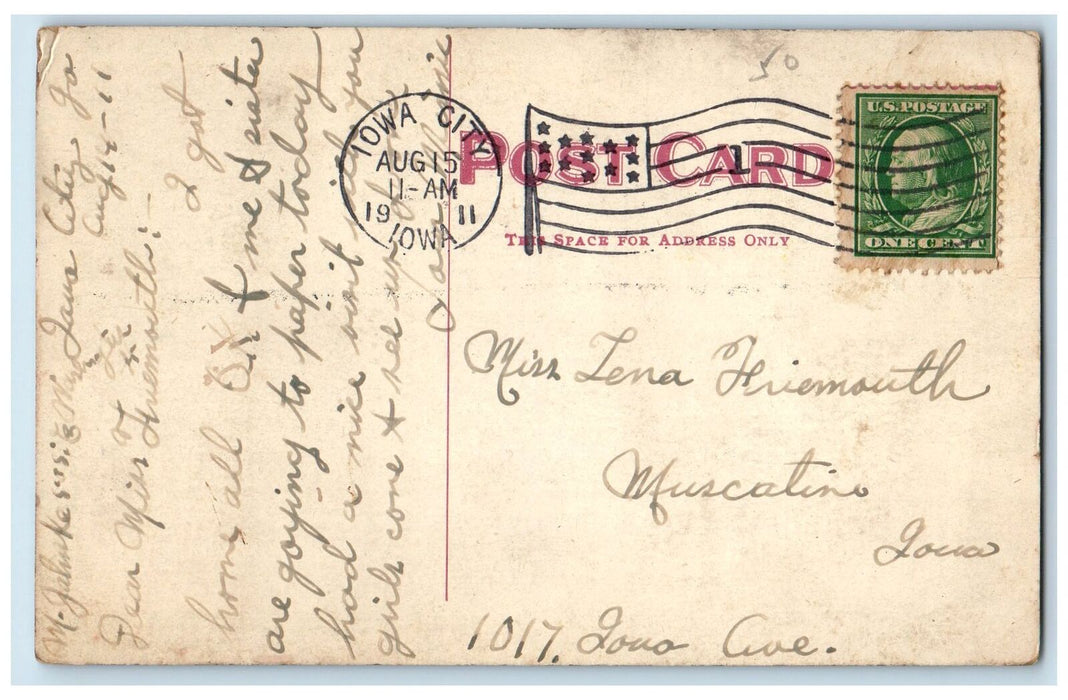 50
POST CARD
THIS SPACE FOR ADDRESS ONLY
IOWA CITY
AUG 15
11-AM
19 11
IOWA
1
U.S. POSTAGE
ONE CENT
Miss Lena Friemouth
Muscatine
Iowa
1017. Iowa Ave.
Iowa City Ia
Aug 14-11
Dear Miss Friemouth:-
I got
home all OK & me & sister
are goying to paper today
had a nice visit with you
girls come & see up